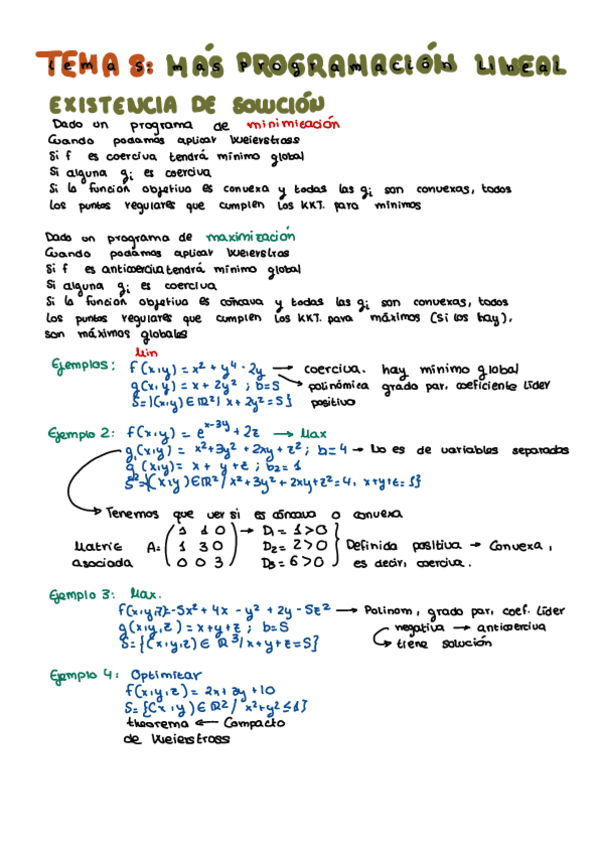 TEMA 8: MÁS PROGRAMACIÓN LINEAL
EXISTENCIA DE SOLUCIÓN
Dado un programa de minimización
Cuando podamos aplicar Weierstrass
Si f es coerciva tendrá mínimo global
Si alguna gi es coerciva
Si la función objetivo es convexa y todas las gi son convexas, todos
los puntos regulares que cumplen los KKT. para mínimos
Dado un programa de maximización
Cuando podamos aplicar Weierstras
Si f es anticoerciva tendrá mínimo global
Si alguna gi es coerciva
Si la función objetivo es cóncava y todas las gi son convexas, todos
los puntos regulares que cumplen los KKT. para máximos (si los hay),
son máximos globales
Min
Ejemplos: f(x,y) = x² + y⁴ - 2y → coerciva. hay mínimo global
g(x,y) = x + 2y² ; b=5 → polinómica grado par, coeficiente líder
S={(x,y)∈ℝ²/ x + 2y² = 5} positivo
Ejemplo 2: f(x,y) = e^(x-3y) + 2z → Max
g₁(x,y) = x²+3y² + 2xy + z² ; b=4 → No es de variables separadas
g(x,y) = x + y + z ; b₂ = 1
S={(x,y)∈ℝ²/ x²+3y² + 2xy+z²=4, x+y+z=1}
Tenemos que ver si es cóncava o convexa
1 1 0 → D₁ = 1>0
Matriz A= 1 3 0 D₂ = 2>0 Definida positiva → Convexa,
asociada 0 0 3 D₃ = 6>0 es decir, coerciva.
Ejemplo 3: Max.
f(x,y,z)=-5x² + 4x - y² + 2y - 5z² → Polinom, grado par, coef. líder
g(x,y,z) = x+y+z ; b=5 negativa → anticoerciva
S={(x,y,z)∈ ℝ³/x+y+z=5} ↳ tiene solución
Ejemplo 4: Optimizar
f(x,y,z) = 2x+3y+10
S={(x,y)∈ℝ²/ x²+y²≤1}
theorema ← Compacto
de Weierstross